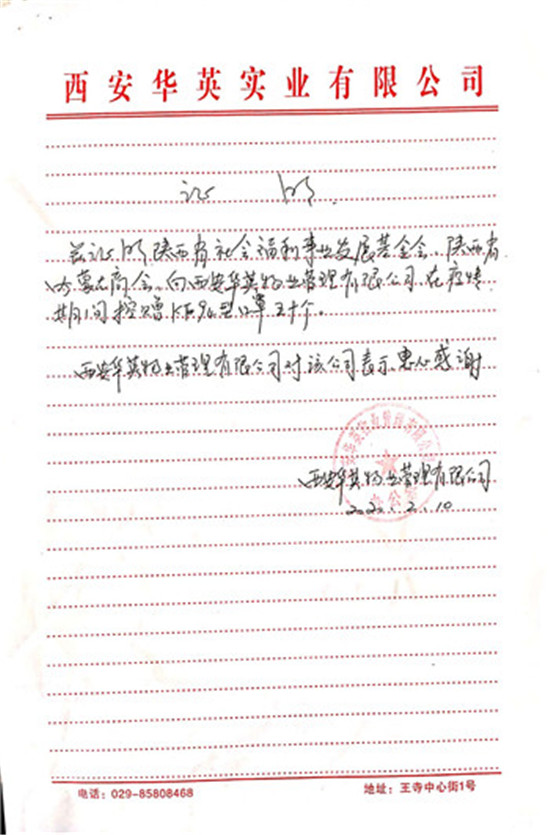 西安华英实业有限公司
证 明
兹证明陕西省社会福利事业发展基金会、陕西省
商会、向西安华英物业管理有限公司在疫情
期间捐赠 型口罩五十个。
西安华英物业管理有限公司对该公司表示衷心感谢
西安华英物业管理有限公司
2020.2.10
电话：029-85808468 地址：王寺中心街1号